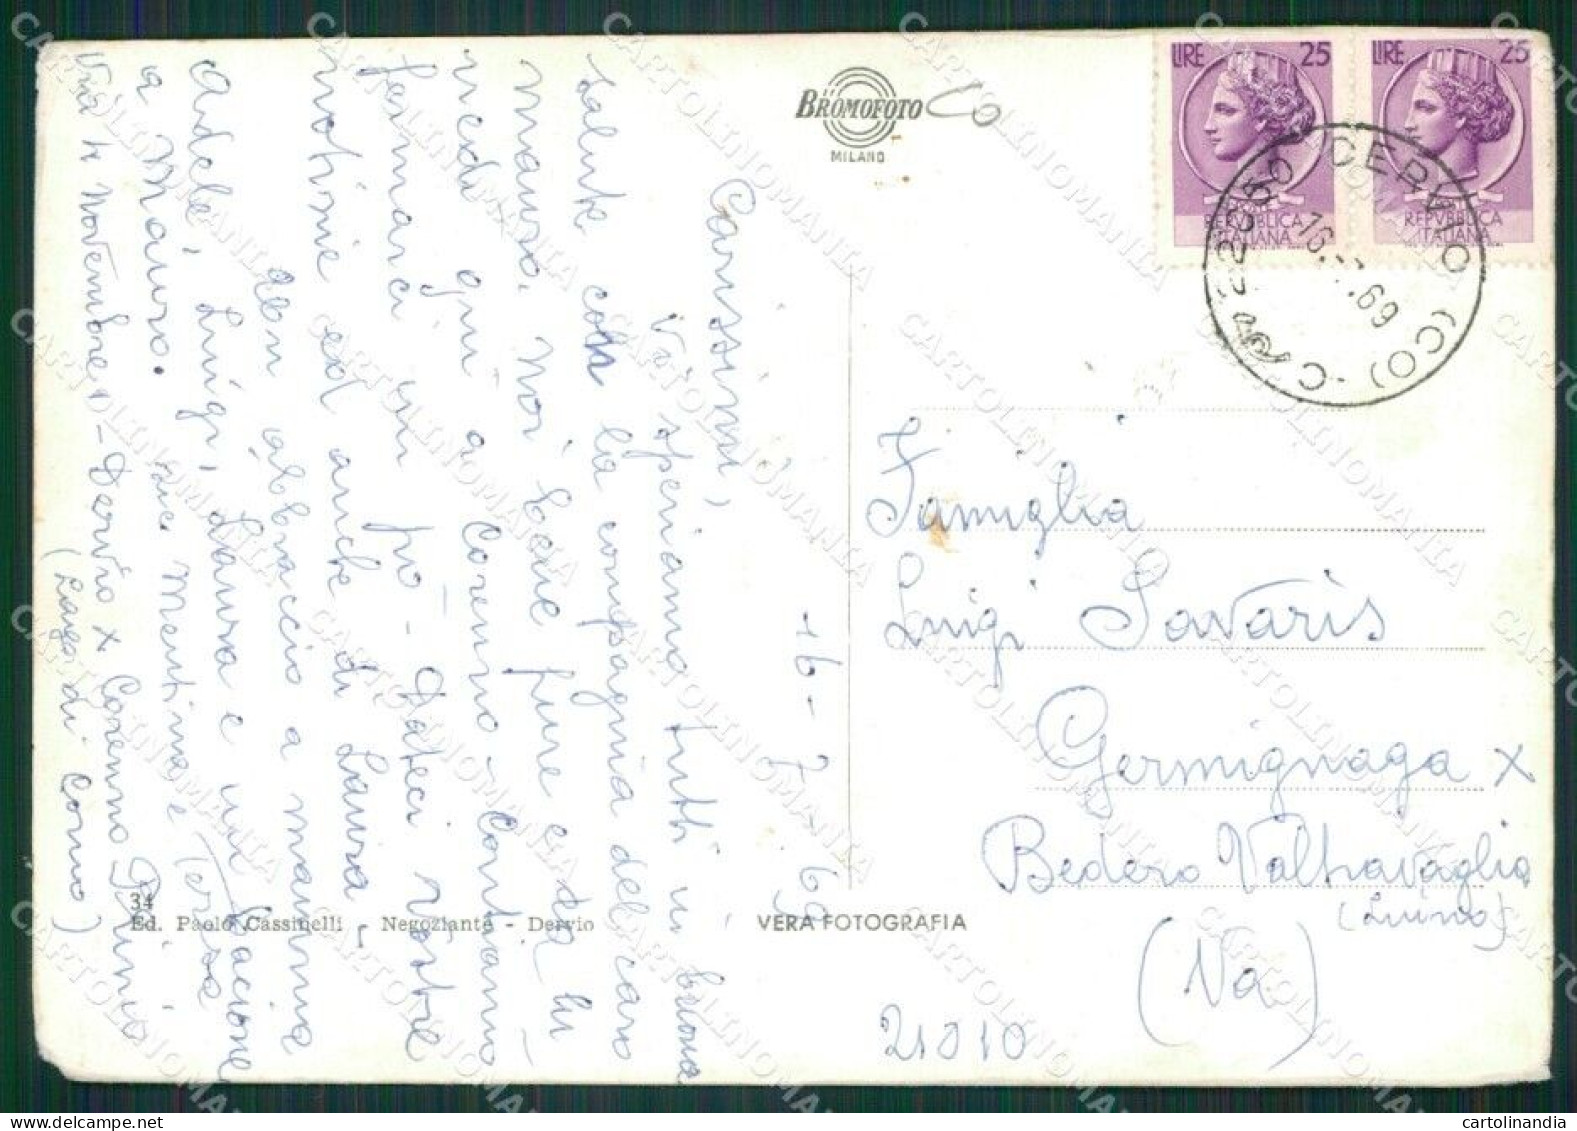 BROMOFOTO
MILANO
LIRE 25
REPVBBLICA
ITALIANA
LIRE 25
REPVBBLICA
ITALIANA
DERVIO (CO)
16.-7.69
16-7-69
Carissimi,
Vi speriamo tutti in buona
salute con la compagnia del caro
Mauro. Noi bene pure e da lu
nedi giù a Corenno - Contiamo
fermarci un po' - Dateci vostre
notizie ed anche di Laura -
Un abbraccio a mamma
Adele, Luigi, Laura e un bacione
a Mauro.
Mentina e Teresa
Via 4 Novembre 1 - Dervio x Corenno Plinio
(Lago di Como)
Famiglia
Luigi Savaris
Germignaga x
Bedero Valtravaglia
(Luino)
(Va)
21010
34
Ed. Paolo Cassinelli - Negoziante - Dervio
VERA FOTOGRAFIA
CARTOLINOMANIA
cartolinandia